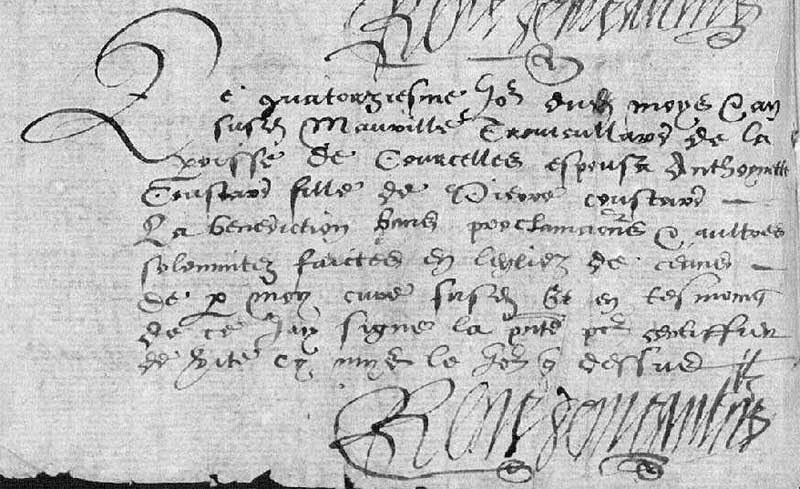 Le quatorziesme Jor dud moys & an
susd Maurille Trouvillard de la
paroisse de Courcelles espousa Anthoynette
Coustard fille de Pierre coustard
La benediction bans proclamaons & aultres
solemnitez faictes en leglize de ceans
de p moy cure susd Et en tesmoing
de ce Jay signe la pnte por certiffier
de vite cy mys le Jor q dessus